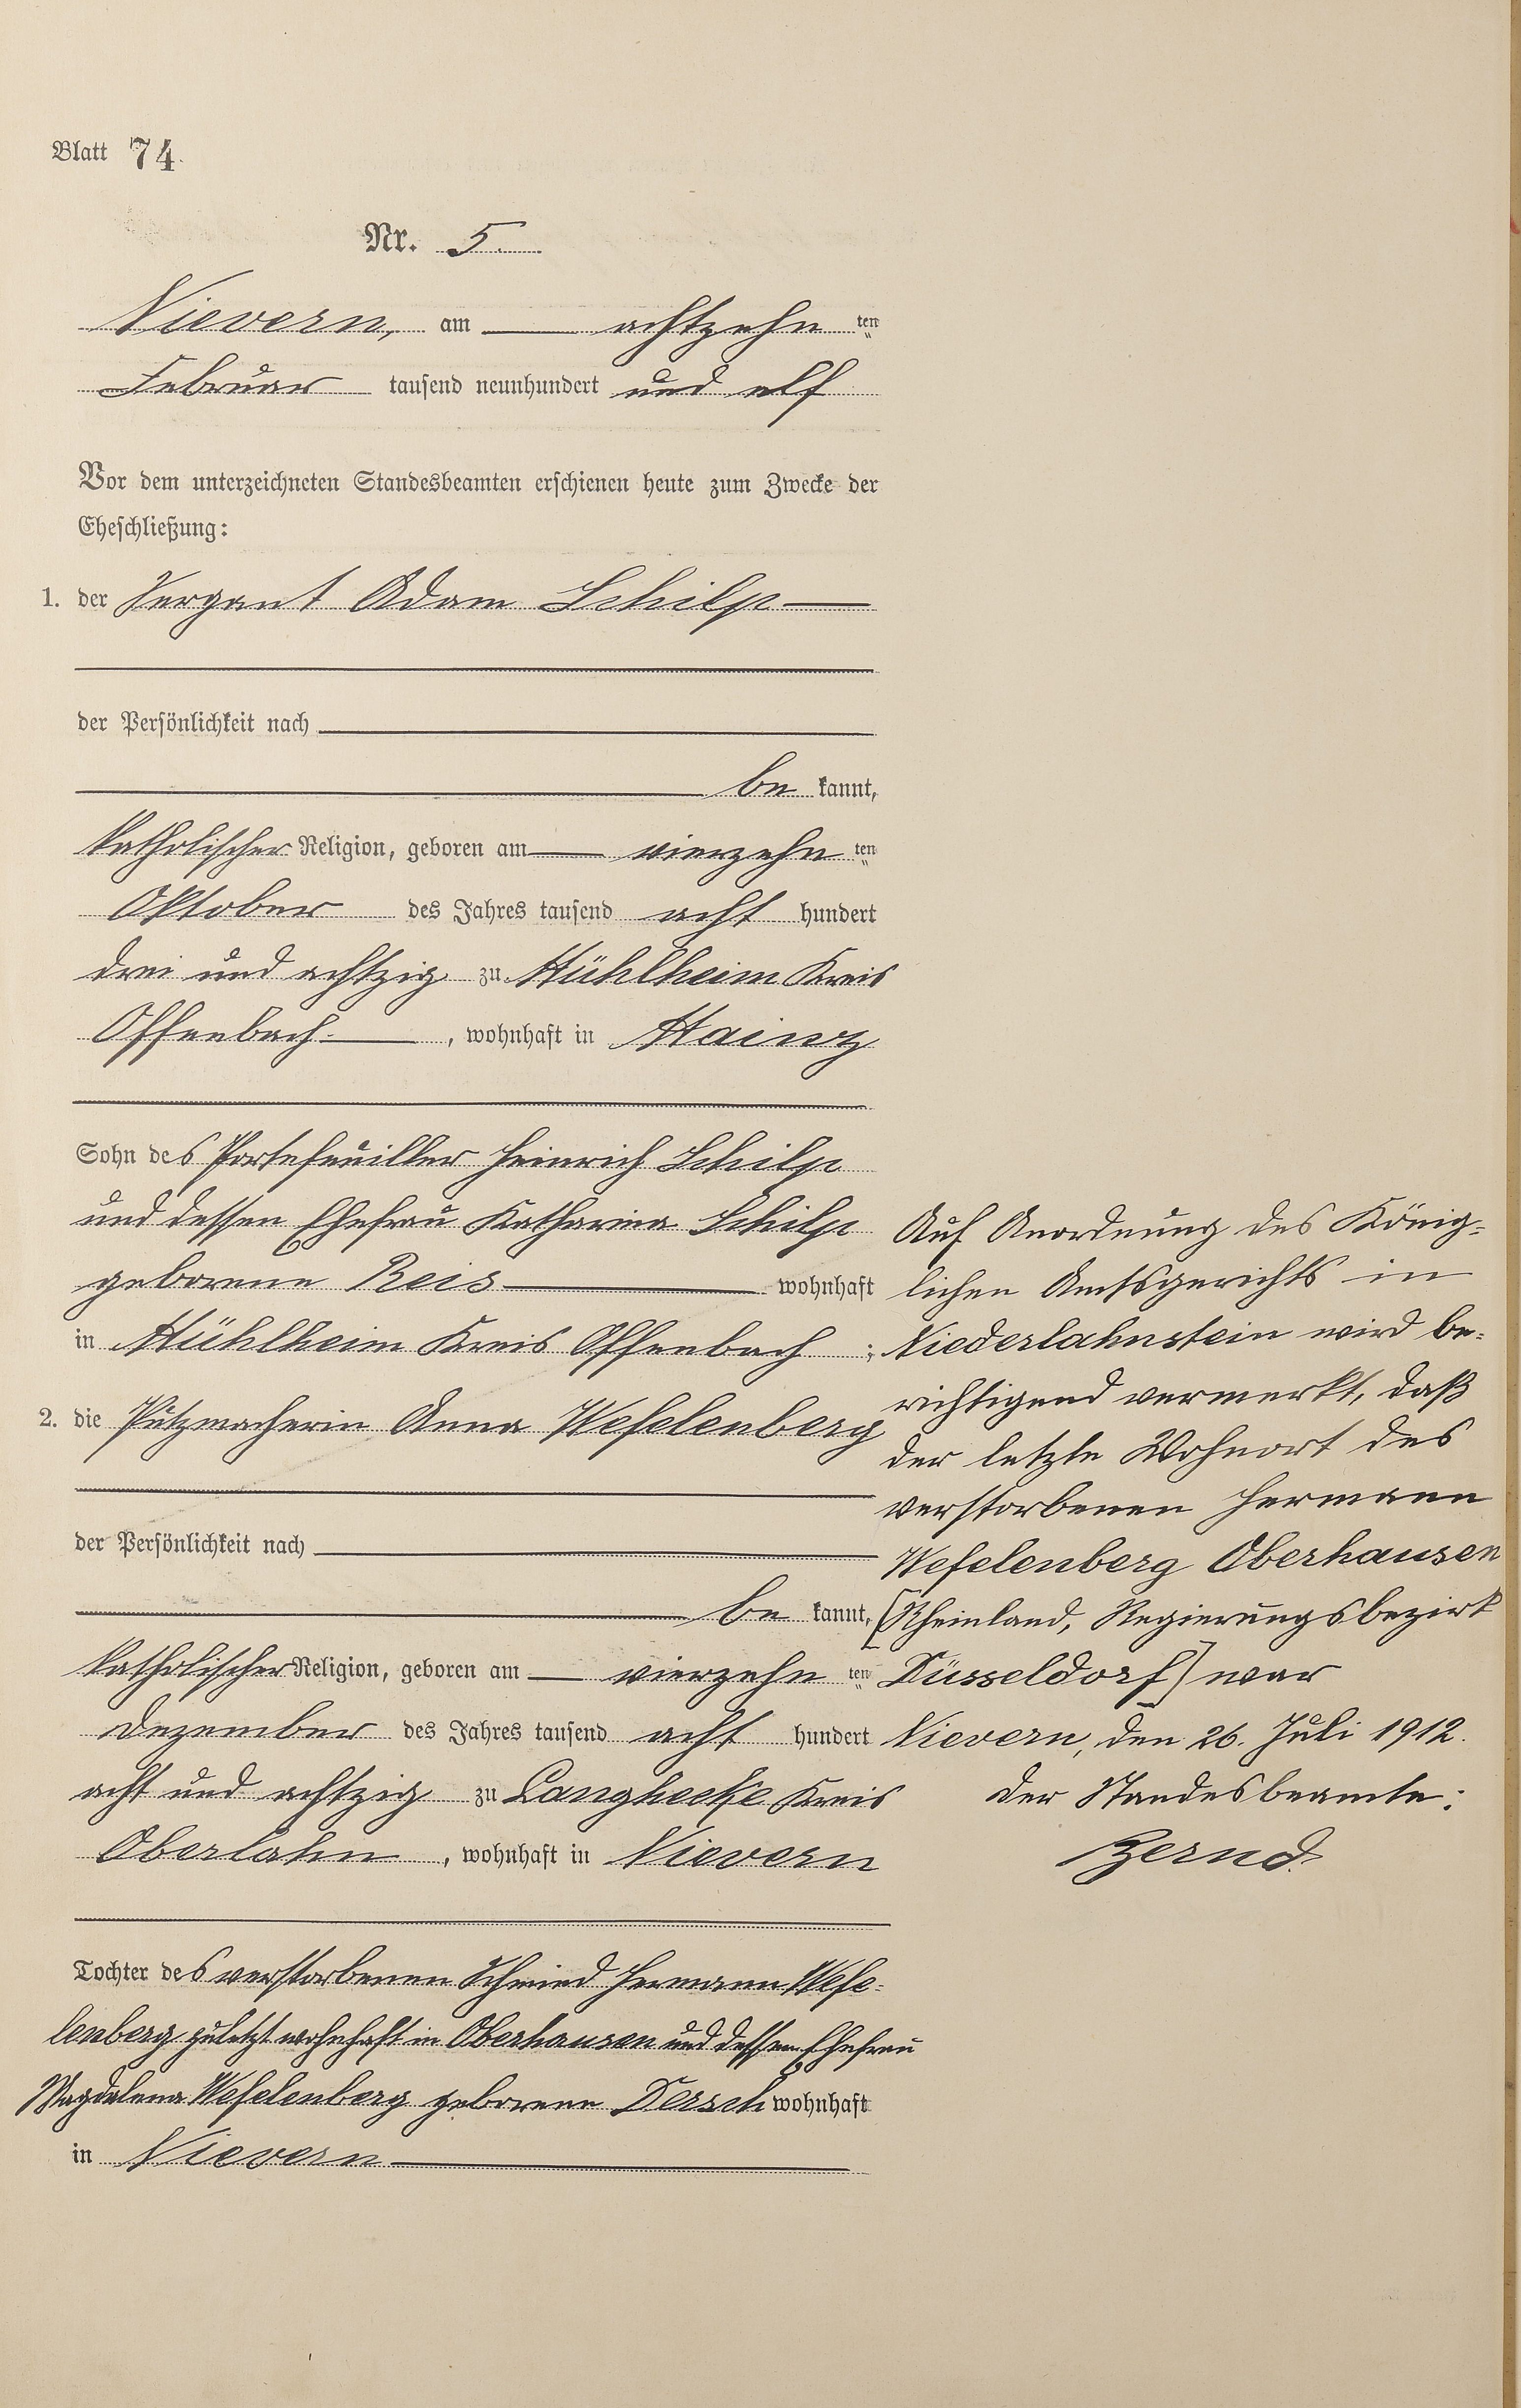 Blatt 74.
Nr. 5.
Nievern, am achtzehn ten
Februar tausend neunhundert und elf
Vor dem unterzeichneten Standesbeamten erschienen heute zum Zwecke der
Eheschließung:
1. der Sergant Adam Schilp
der Persönlichkeit nach
be kannt,
katholischer Religion, geboren am vierzehn ten
Oktober des Jahres tausend acht hundert
drei und achtzig zu Mühlheim Kreis
Offenbach, wohnhaft in Mainz
Sohn des Portefeuiller Heinrich Schilp
und dessen Ehefrau Katharina Schilp
geborene Reis wohnhaft
in Mühlheim Kreis Offenbach ;
2. die Putzmacherin Anna Wefelenberg
der Persönlichkeit nach
be kannt,
katholischer Religion, geboren am vierzehn ten
Dezember des Jahres tausend acht hundert
acht und achtzig zu Langhecke Kreis
Oberlahn, wohnhaft in Nievern
Tochter des verstorbenen Schmied Hermann Wefe-
lenberg zuletzt wohnhaft in Oberhausen und dessen Ehefrau
Magdalena Wefelenberg geborene Dersch wohnhaft
in Nievern
Auf Anordnung des König-
lichen Amtsgerichts in
Niederlahnstein wird be-
richtigend vermerkt, daß
der letzte Wohnort des
verstorbenen Hermann
Wefelenberg Oberhausen
[Rheinland, Regierungsbezirk
Düsseldorf] war
Nievern, den 26. Juli 1912.
Der Standesbeamte:
Zernd.